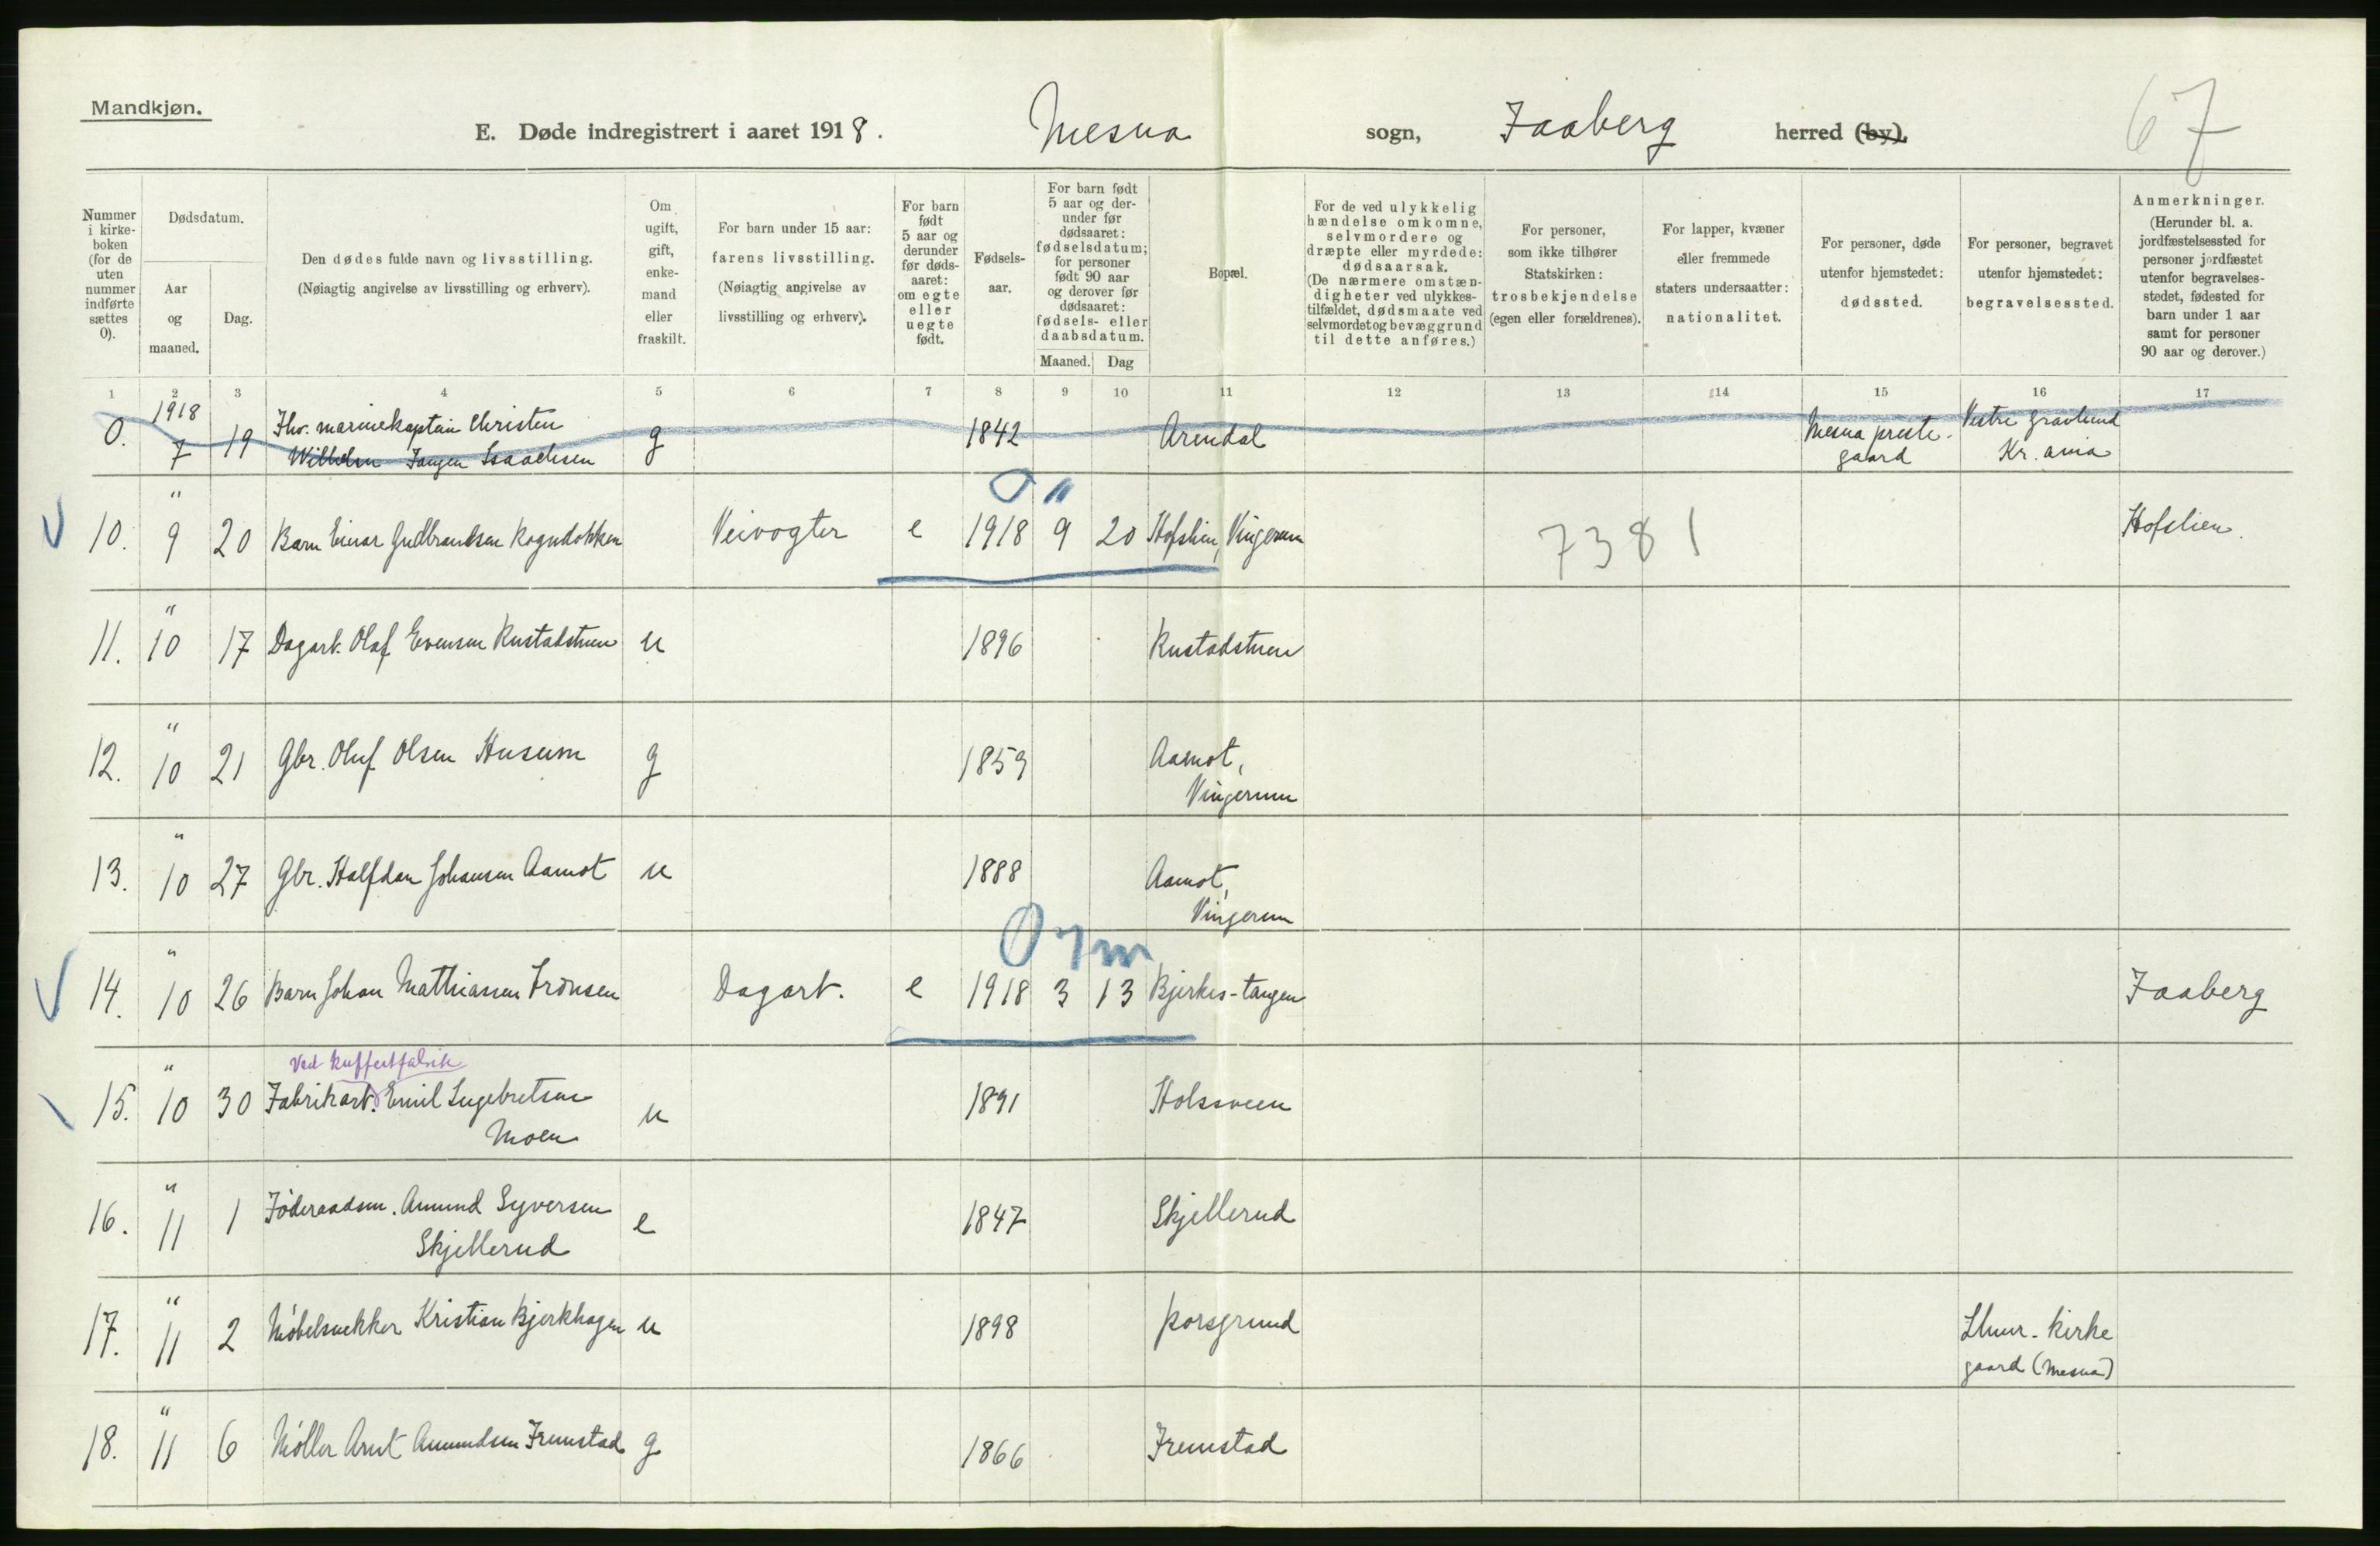 Mandkjøn.
E. Døde indregistrert i aaret 1918. Mesna sogn, Faaberg herred (by).
67
Nummer i kirke-boken (for de uten nummer indførte sættes 0).
Dødsdatum.
Aar og maaned.
Dag.
Den dødes fulde navn og livsstilling.
(Nøiagtig angivelse av livsstilling og erhverv).
Om ugift, gift, enke-mand eller fraskilt.
For barn under 15 aar: farens livsstilling.
(Nøiagtig angivelse av livsstilling og erhverv).
For barn født 5 aar og derunder før døds-aaret: om egte eller uegte født.
Fødsels-aar.
For barn født 5 aar og der-under før dødsaaret: fødselsdatum; for personer født 90 aar og derover før dødsaaret: fødsels- eller daabsdatum.
Maaned. Dag
Bopæl.
For de ved ulykkelig hændelse omkomne, selvmordere og dræpte eller myrdede: dødsaarsak.
(De nærmere omstæn-digheter ved ulykkes-tilfældet, dødsmaate ved selvmordet og bevæggrund til dette anføres.)
For personer, som ikke tilhører Statskirken: trosbekjendelse (egen eller forældrenes).
For lapper, kvæner eller fremmede staters undersaatter: nationalitet.
For personer, døde utenfor hjemstedet: dødssted.
For personer, begravet utenfor hjemstedet: begravelsessted.
Anmerkninger.
(Herunder bl. a. jordfæstelsessted for personer jordfæstet utenfor begravelses-stedet, fødested for barn under 1 aar samt for personer 90 aar og derover.)
1 2 3 4 5 6 7 8 9 10 11 12 13 14 15 16 17
0. 1918 7 19 Fhv. marinekaptein Christen g 1842 Arendal Mesna preste- Vestre gravlund
Wilhelm Fangen Isaachsen gaard Kr.ania
0 "
10. " 9 20 Barn Einar Gudbrandsen Rogndokken Veivogter e 1918 9 20 Hofslien, Vingerum 7381 Hofslien.
11. " 10 17 Dagarb. Olaf Evensen Rustadstuen u 1896 Rustadstuen
12. " 10 21 Gbr. Oluf Olsen Husum g 1859 Aamot,
Vingerum
13. " 10 27 Gbr. Halfdan Johansen Aamot u 1888 Aamot,
Vingerum
0 7 m
14. " 10 26 Barn Johan Mathiassen Frønsen Dagarb. e 1918 3 13 Bjerkes-tangen Faaberg
Ved kuffertfabrik
15. " 10 30 Fabrikarb. Emil Ingebretsen u 1891 Holssveen
Moen
16. " 11 1 Føderaadsm. Amund Syversen e 1847 Skjellerud
Skjellerud
17. " 11 2 Møbelsnekker Kristian Bjerkhagen u 1898 Porsgrund Lhmr. kirke
gaard (Mesna)
18. " 11 6 Møller Arnt Amundsen Fremstad g 1866 Fremstad